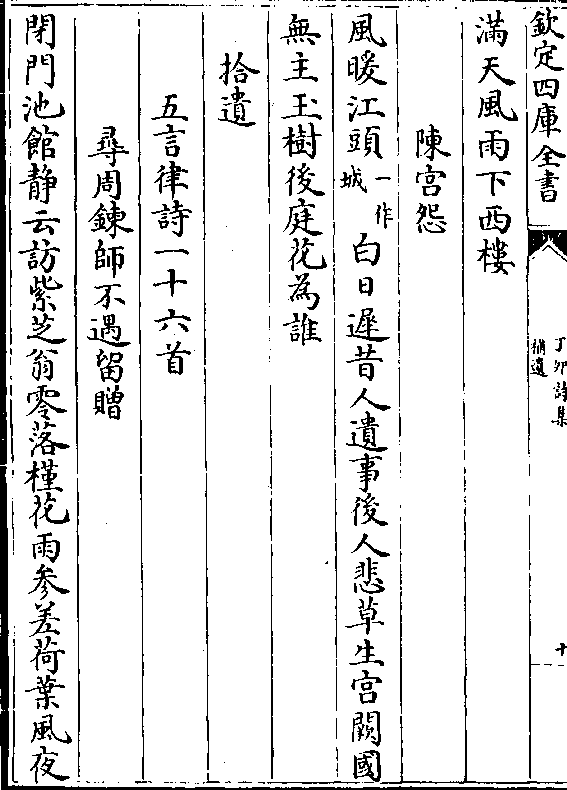 欽定四庫全書
丁卯詩集
補遺
十
滿天風雨下西樓
陳宫怨
風暖江頭一作城白日遲昔人遺事後人悲草生宫闕國
無主玉樹後庭花為誰
拾遺
五言律詩一十六首
尋周鍊師不遇留贈
閉門池館静云訪紫芝翁零落槿花雨參差荷葉風夜